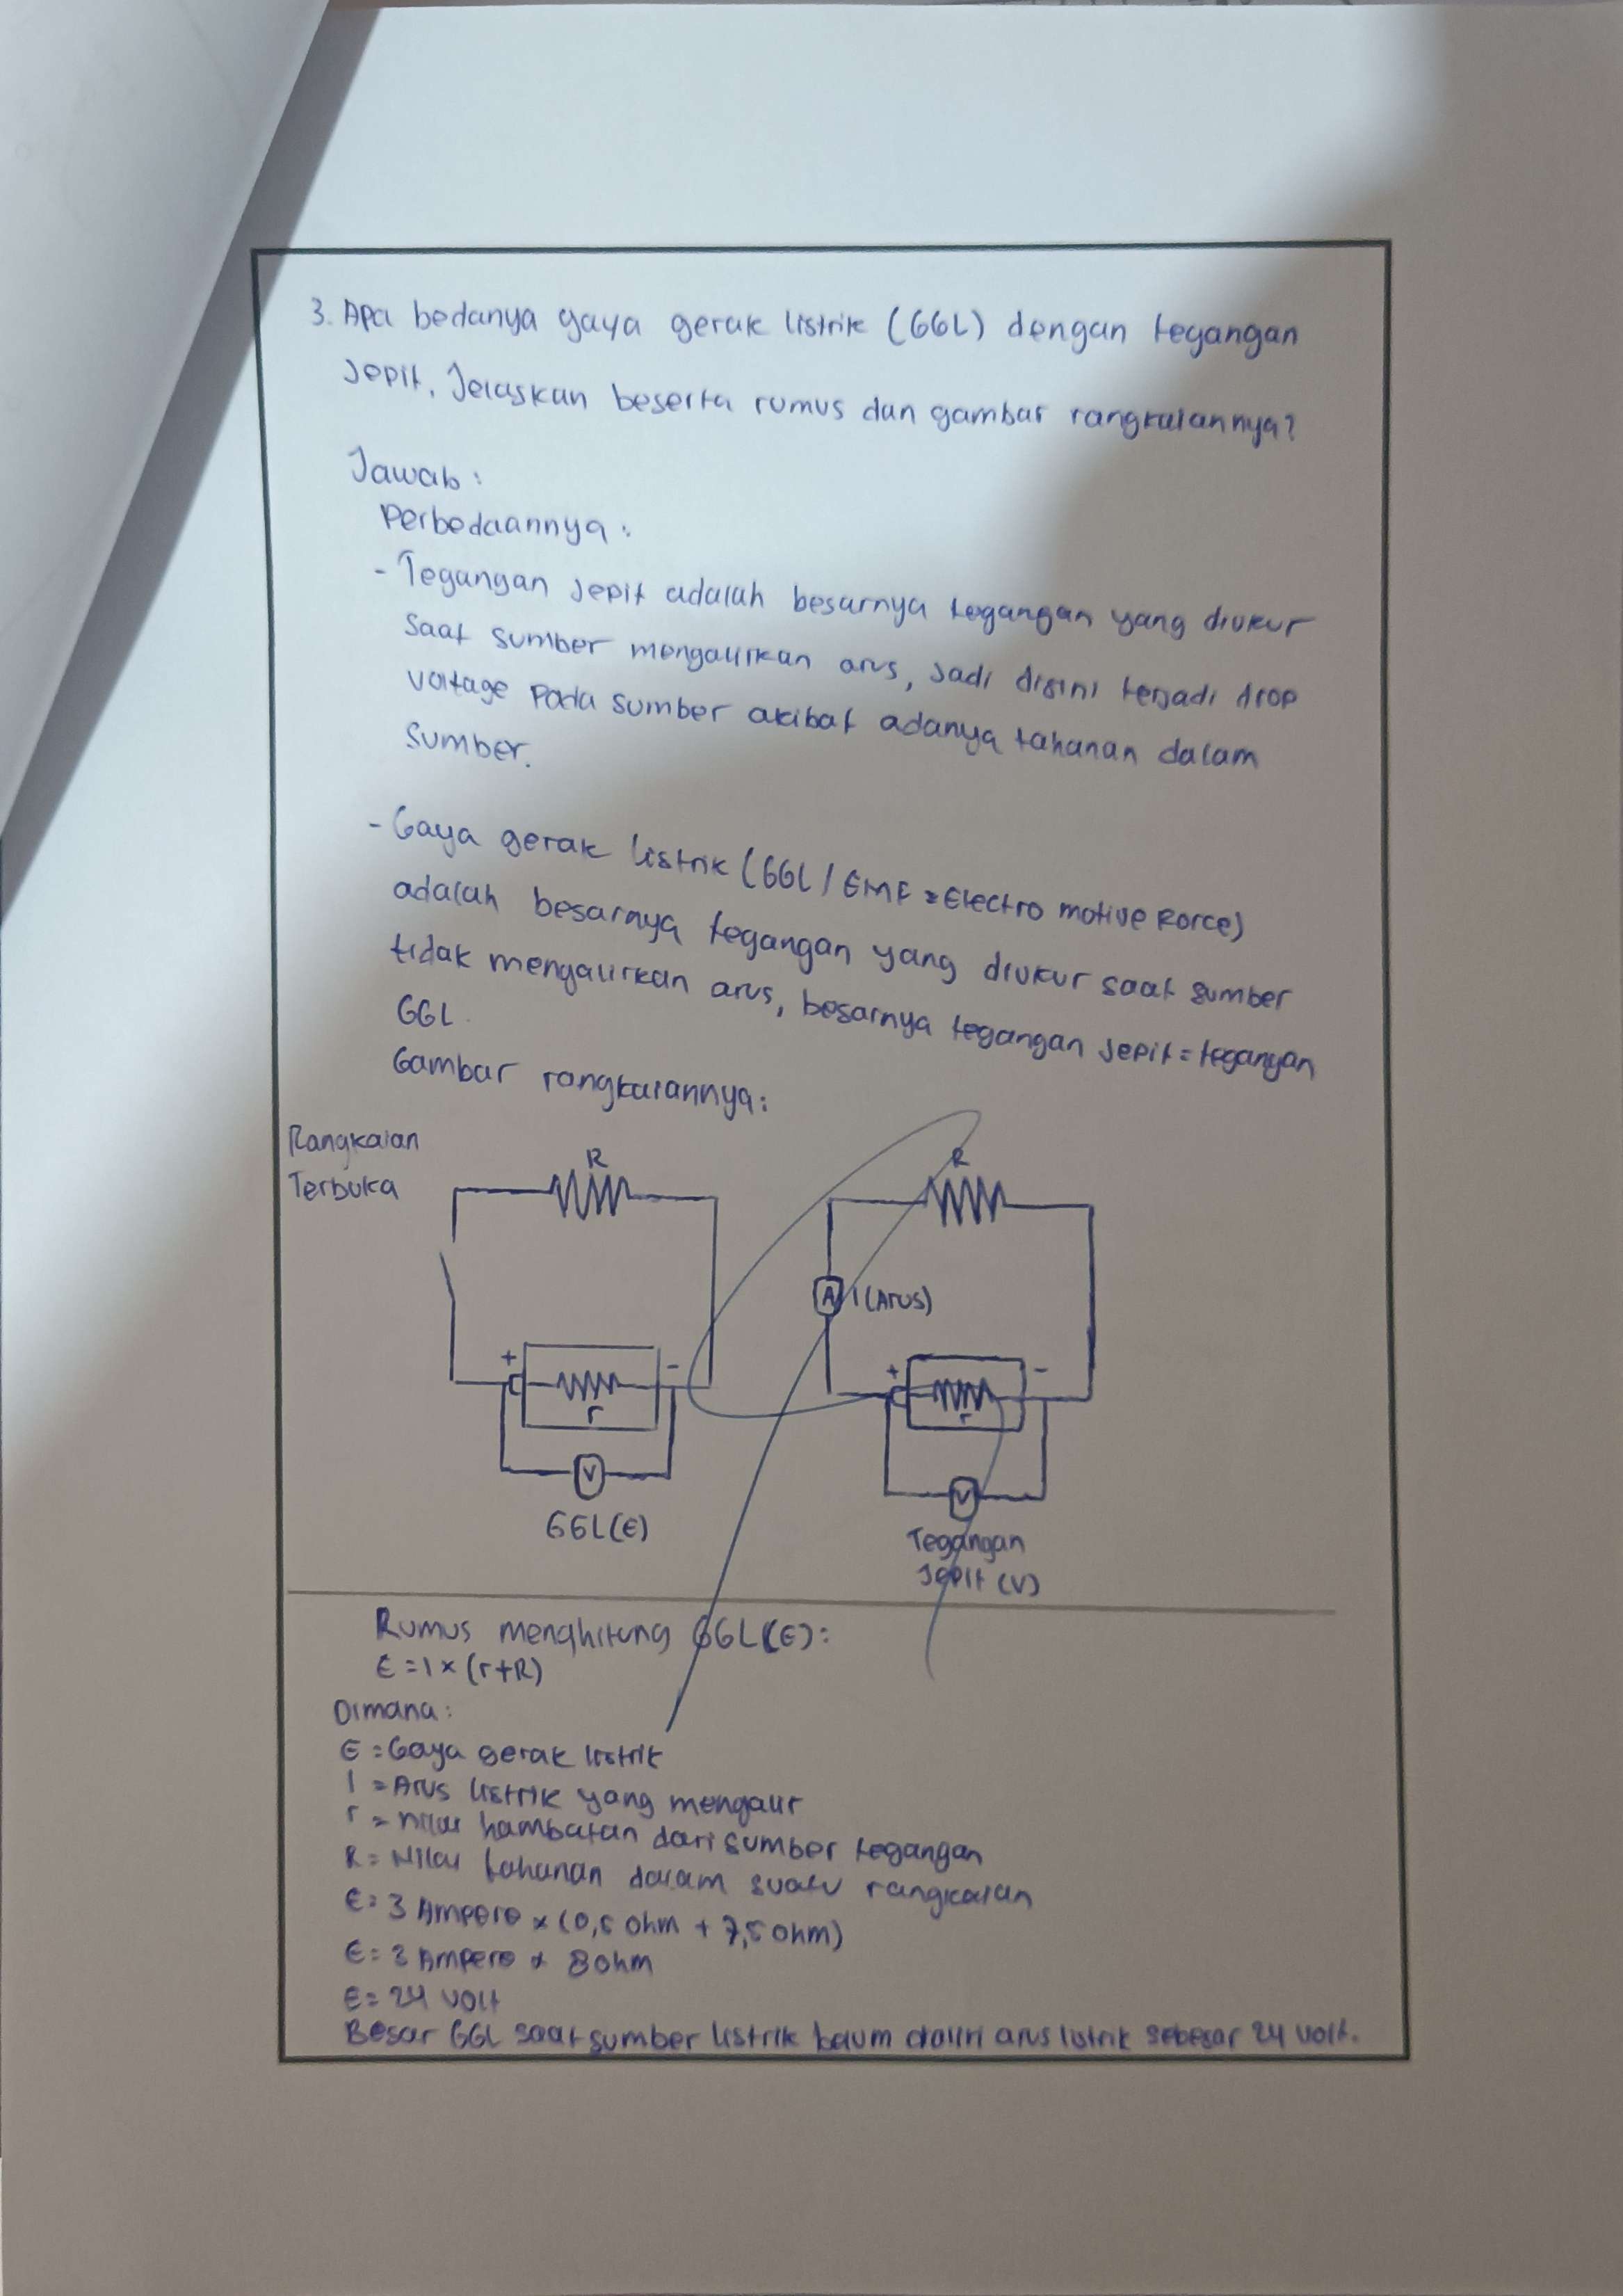 3. Apa bedanya gaya gerak listrik (GGL) dengan tegangan
Jepit. Jelaskan beserta rumus dan gambar rangkaiannya?
Jawab :
Perbedaannya :
- Tegangan Jepit adalah besarnya tegangan yang diukur
Saat sumber mengalirkan arus, Jadi disini terjadi drop
Voltage Pada sumber akibat adanya tahanan dalam
Sumber.
- Gaya gerak listrik (GGL / EMF = Electro motive Force)
adalah besarnya tegangan yang diukur saat sumber
tidak mengalirkan arus, besarnya tegangan Jepit = tegangan
GGL.
Gambar rangkaiannya :
Rangkaian
Terbuka
R
R
A
I (Arus)
+
-
r
V
GGL (E)
+
-
r
V
Tegangan
Jepit (V)
Rumus menghitung GGL (E) :
E = I x (r + R)
Dimana :
E = Gaya gerak listrik
I = Arus listrik yang mengalir
r = nilai hambatan dari sumber tegangan
R = Nilai tahanan dalam suatu rangkaian
E = 3 Ampere x (0,5 ohm + 7,5 ohm)
E = 3 Ampere x 8 ohm
E = 24 Volt
Besar GGL saat sumber listrik belum dialiri arus listrik sebesar 24 Volt.